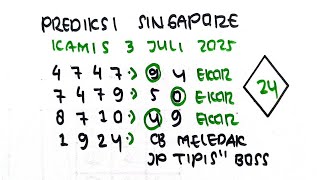 PREDIKSI SINGAPORE
KAMIS 3 JULI 2025
4 7 4 7 : 9 4 EKOR
7 4 7 9 : 5 0 EKOR
8 7 1 0 : 4 9 EKOR
24
1 9 2 4 : CB MELEDAK
JP TIPIS" BOSS